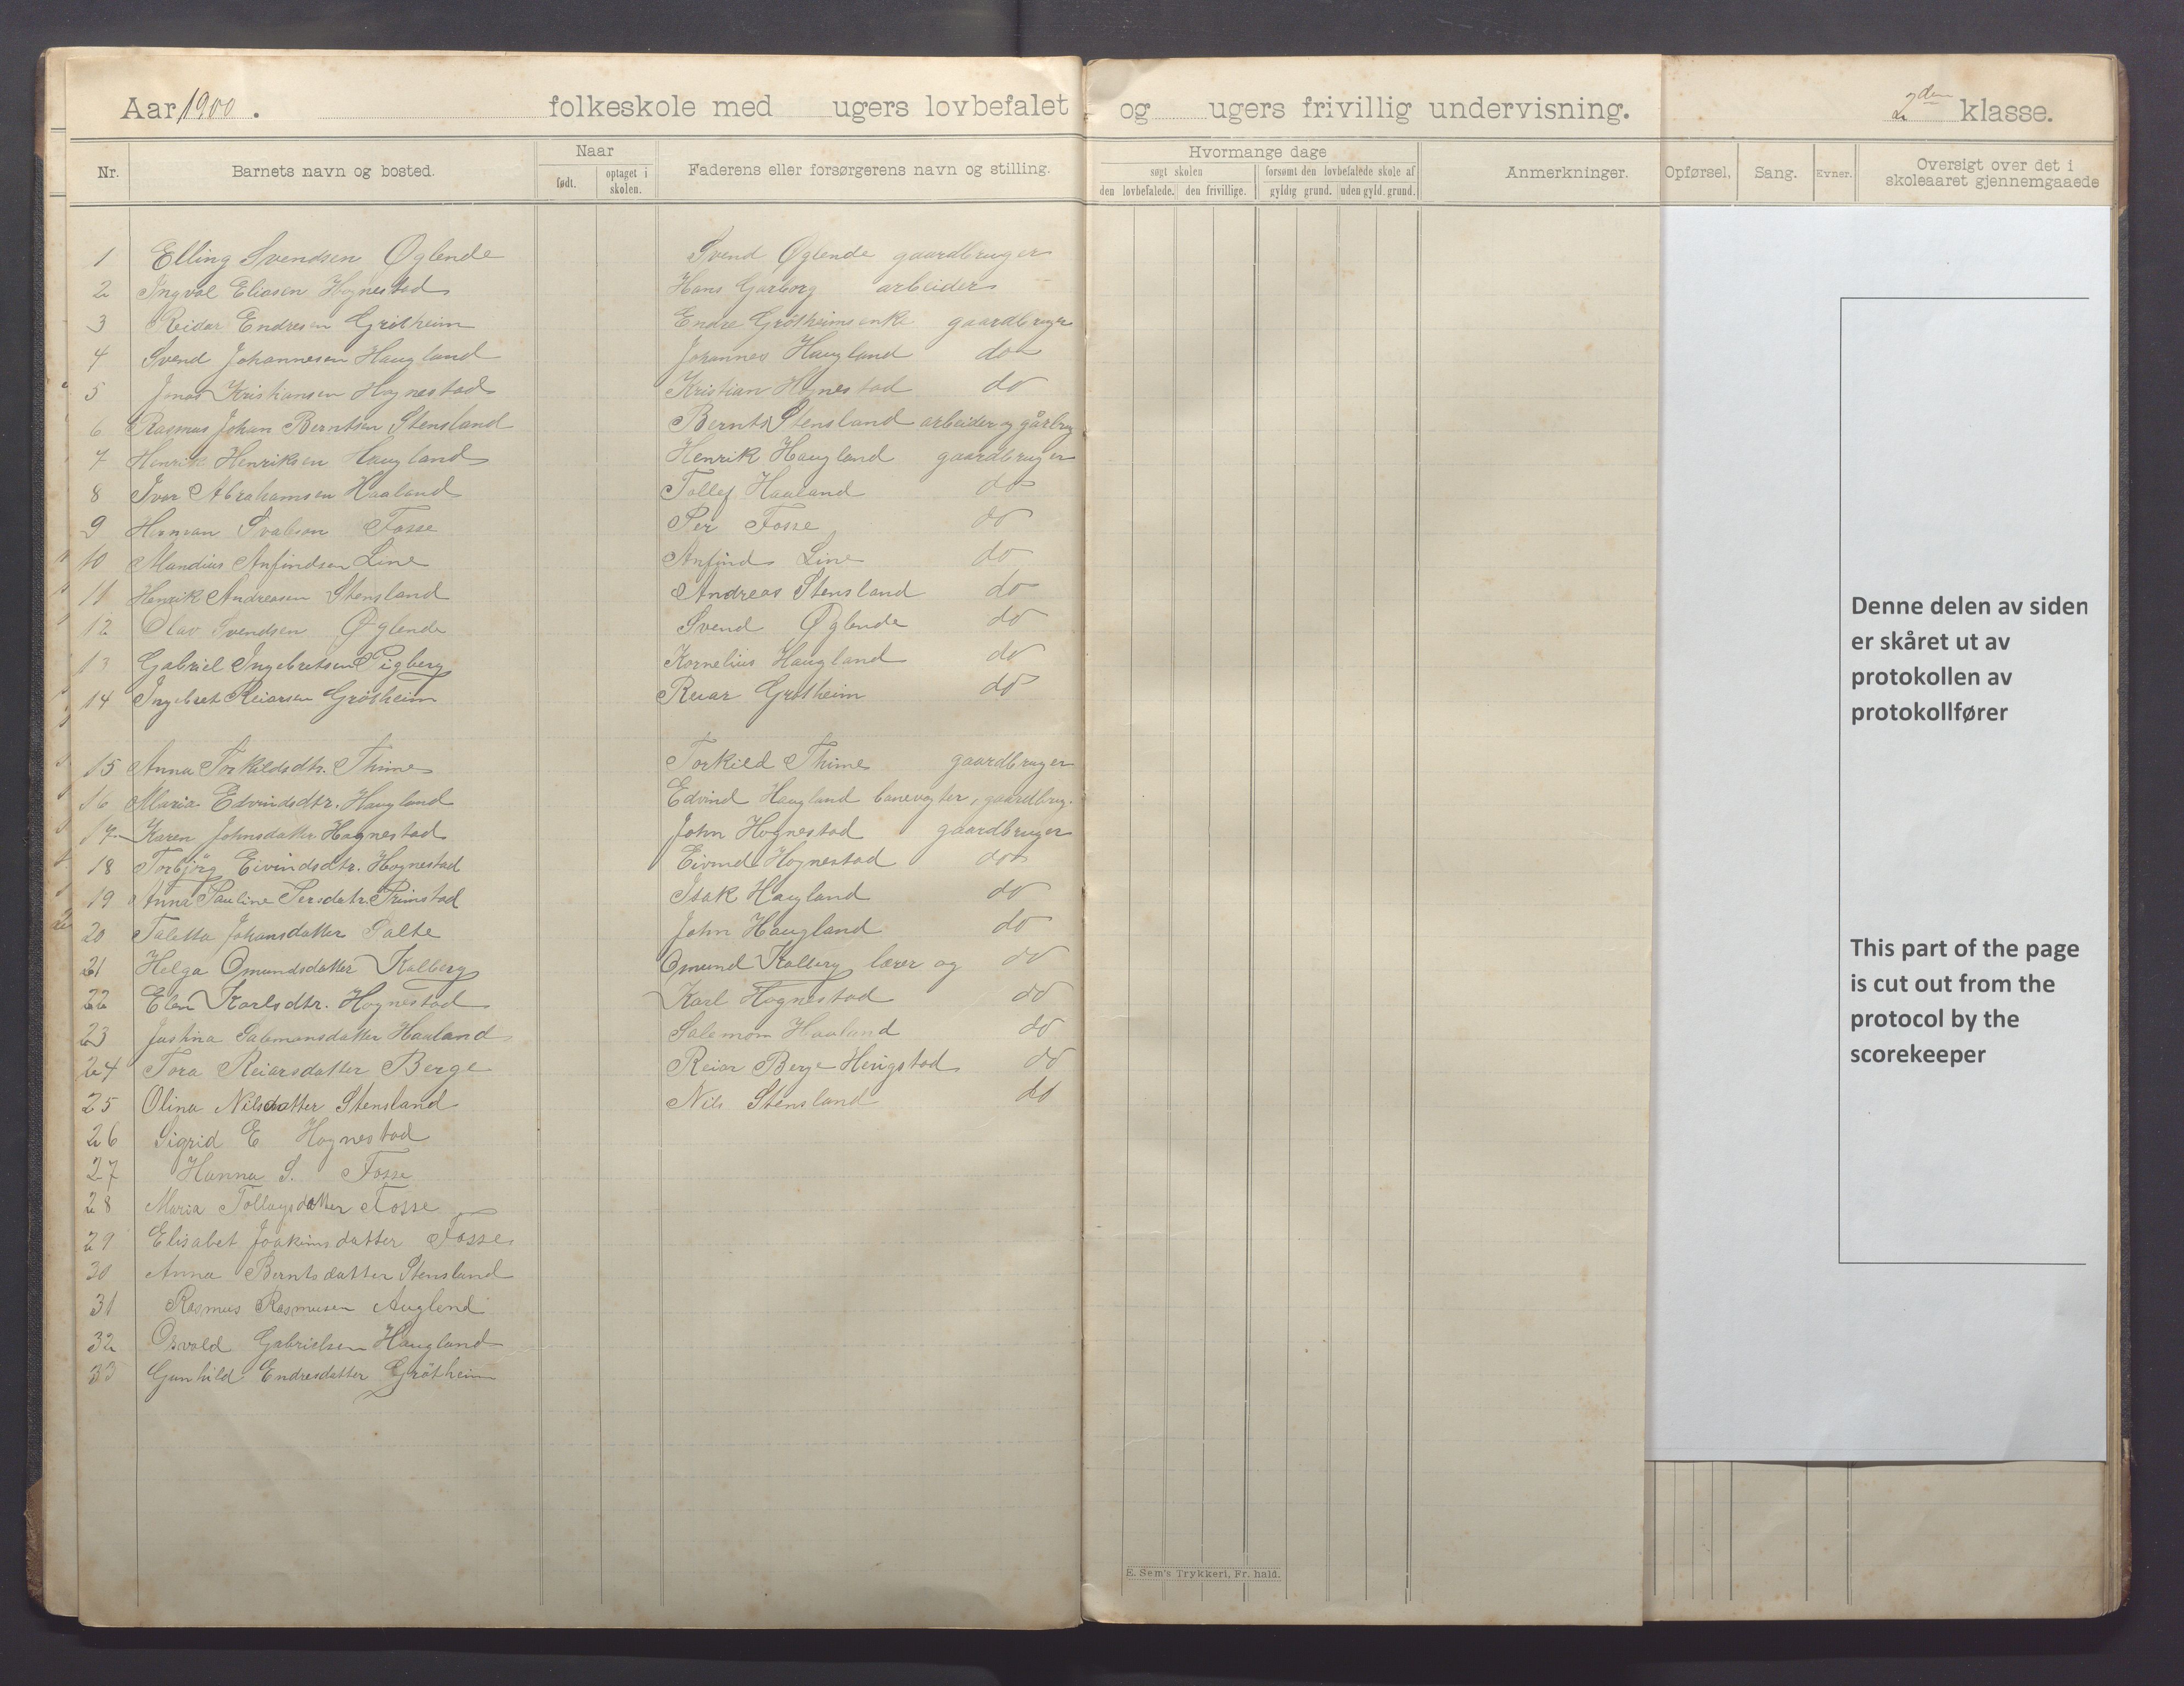 Aar 1900. folkeskole med ugers lovbefalet og ugers frivillig undervisning. 2den klasse.
Nr. Barnets navn og bosted. Naar født. optaget i skolen. Faderens eller forsørgerens navn og stilling. Hvormange dage søgt skolen den lovbefalede. den frivillige. forsømt den lovbefalede skole af gyldig grund. uden gyld. grund. Anmerkninger. Opførsel, Sang. Evner. Oversigt over det i skoleaaret gjennemgaaede
1 Elling Svendsen Øglende Svend Øglende gaardbruger
2 Ingval Eliasen Hognestad Hans Garborg arbeider
3 Reidar Endresen Grötheim Endre Grötheims enke gaardbruger
4 Svend Johannesen Haugland Johannes Haugland do
5 Jonas Kristiansen Hognestad Kristian Hognestad do
6 Rasmus Johan Berntsen Stensland Bernt Stensland arbeider og gårbrug
7 Henrik Henriksen Haugland Henrik Haugland gaardbruger
8 Ivar Abrahamsen Haaland Tollef Haaland do
9 Herman Fosse Per Fosse do
10 Mandius Anfindsen Line Anfind Line do
11 Henrik Andreasen Stensland Andreas Stensland do
12 Olav Svendsen Øglende Svend Øglende do
13 Gabriel Ingebretsen Kornelius Haugland do
14 Ingebret Reiarsen Grötheim Reiar Grötheim do
15 Anna Torkildsdtr. Thime Torkild Thime gaardbruger
16 Maria Edvindsdtr. Haugland Edvind Haugland banevogter, gaardbrug.
17 Karen Johnsdatter Hognestad John Hognestad gaardbruger
18 Torbjörg Eivindsdtr. Hognestad Eivind Hognestad do
19 Anna Pauline Persdatr. Isak Haugland do
20 Taletta Johansdatter Salte John Haugland do
21 Helga Omundsdatter Kalberg Omund Kalberg lærer og do
22 Elen Karlsdtr. Hognestad Karl Hognestad do
23 Justina Salemonsdatter Haaland Salemon Haaland do
24 Tora Reiarsdatter Berge Reiar Berge do
25 Olina Nilsdatter Stensland Nils Stensland do
26 Sigrid E Hognestad
27 Hanna S. Fosse
28 Maria Fosse
29 Elisabet Joakimsdatter Fosse
30 Anna Berntsdatter Stensland
31 Rasmus Rasmusen Auglend
32 Osvald Gabrielsen Haugland
33 Gunhild Endresdatter Grötheim
Denne delen av siden
er skåret ut av
protokollen av
protokollfører
This part of the page
is cut out from the
protocol by the
scorekeeper
E. Sem's Trykkeri, Fr. hald.